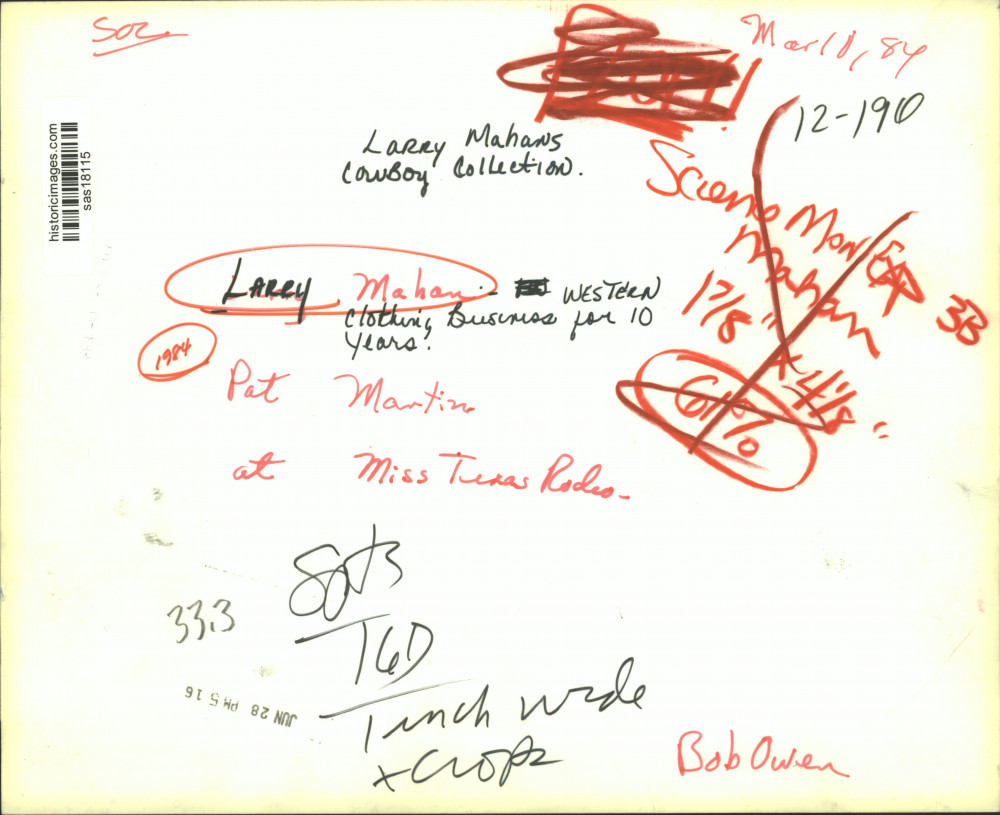 Soc
Mar 11, 84
12-190
historicimages.com
sas18115
LARRY MAHANS
COWBOY COLLECTION.
Scene Mon
Mahan
3B
17/8" x 4 1/8"
61%
LARRY Mahan - WESTERN
Clothing Business for 10
Years.
1984
Pat Martin
at Miss Texas Rodeo.
33.3
Spts
TGD
1 inch wide
x crop
JUN 28 PM 5 16
Bob Owen